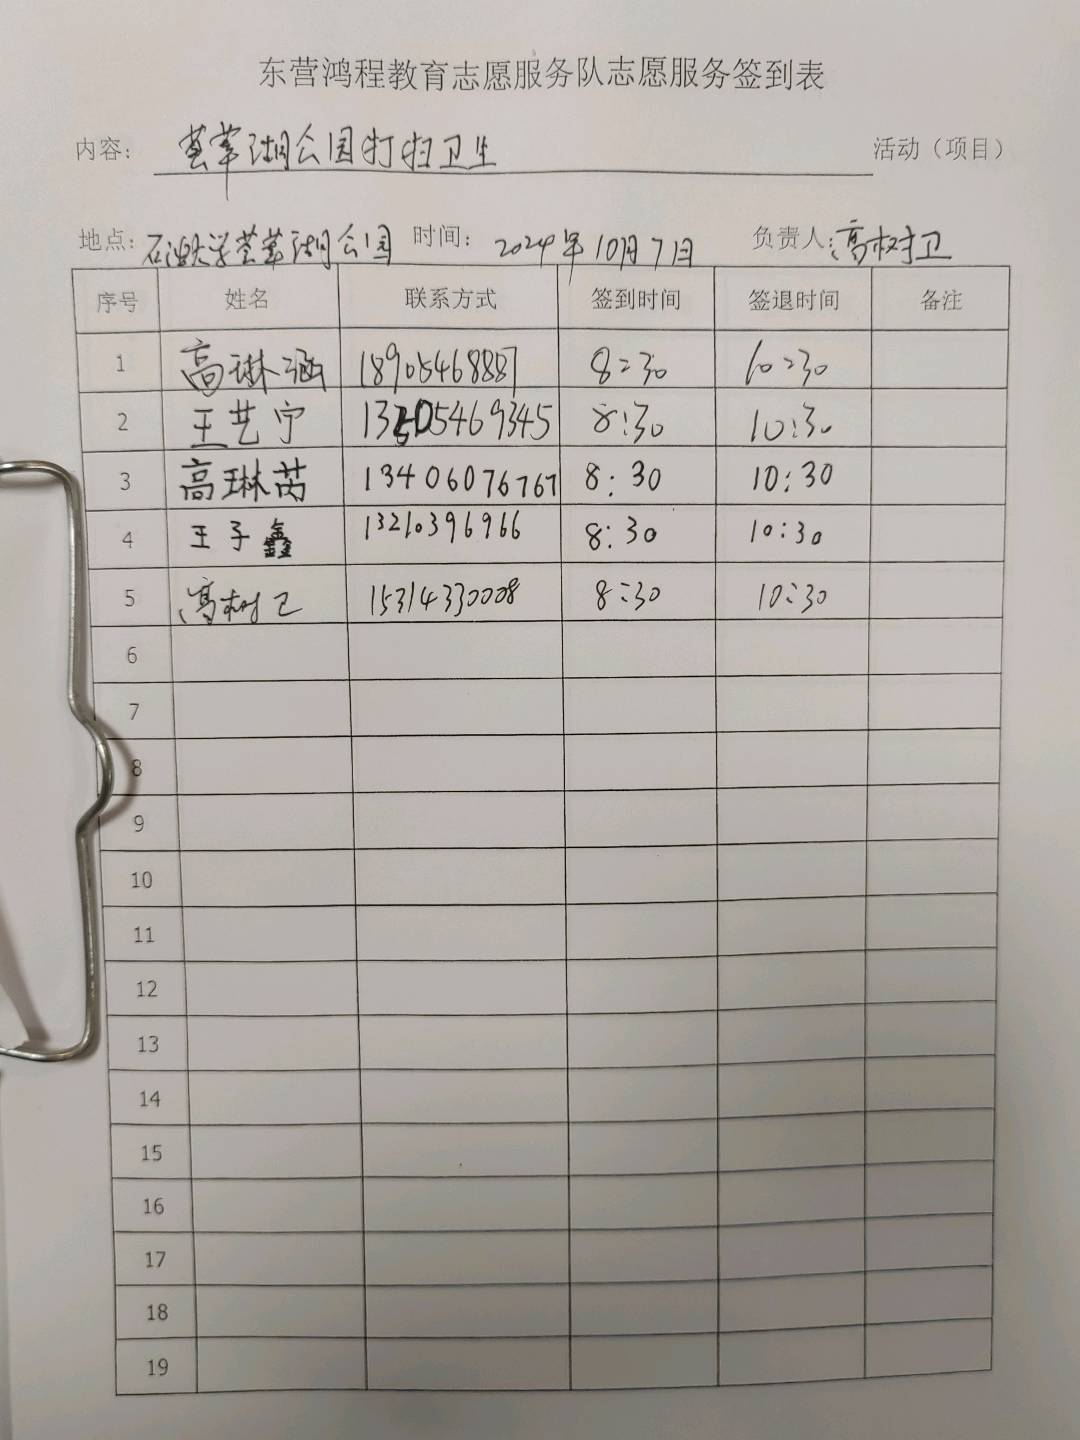 东营鸿程教育志愿服务队志愿服务签到表
内容： 荟萃湖公园打扫卫生 活动（项目）
地点：石油大学荟萃湖公园 时间： 2024年10月7日 负责人：高树卫
序号 姓名 联系方式 签到时间 签退时间 备注
1 高琳涵 18905468887 8:30 10:30
2 王艺宁 13505469345 8:30 10:30
3 高琳芮 13406076767 8:30 10:30
4 王子鑫 13210396966 8:30 10:30
5 高树卫 15314330008 8:30 10:30
6
7
8
9
10
11
12
13
14
15
16
17
18
19